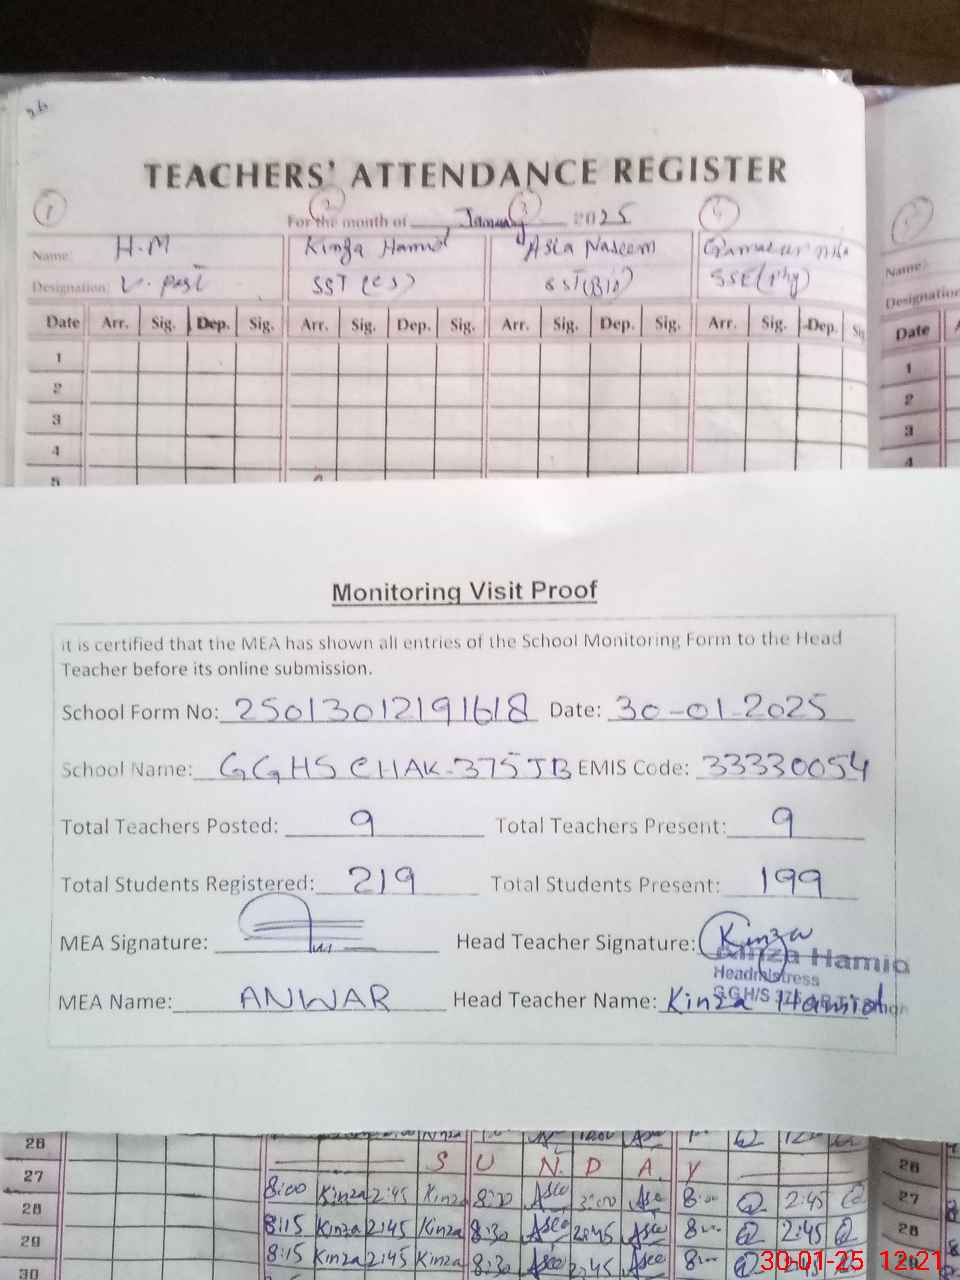 TEACHERS' ATTENDANCE REGISTER
1 2 3 4
For the month of January 2025
Name: H.M Kinza Hamid Asia Naseem
Designation: V. Post SST (CS) SST(Bio) SSE(Phy)
Name:
Designation
Date Arr. Sig. Dep. Sig. Arr. Sig. Dep. Sig. Arr. Sig. Dep. Sig. Arr. Sig. Dep. Date
1 1
2 2
3 3
4 4
5
Monitoring Visit Proof
it is certified that the MEA has shown all entries of the School Monitoring Form to the Head
Teacher before its online submission.
School Form No: 25013012191618 Date: 30-01-2025
School Name: GGHS CHAK-375JB EMIS Code: 33330054
Total Teachers Posted: 9 Total Teachers Present: 9
Total Students Registered: 219 Total Students Present: 199
MEA Signature: Head Teacher Signature: Kinza
Kinza Hamid
Headmistress
MEA Name: ANWAR Head Teacher Name: Kinza Hamid
26 26
27 S U N D A Y 27
28 8:00 Kinza 2:45 Kinza 8:30 Asia 3:00 Asia 8:00 2:45 28
29 8:15 Kinza 2:45 Kinza 8:30 Asia 2:45 Asia 8:00 2:45 29
30 8:15 Kinza 2:45 Kinza 8:30 Asia 2:45 Asia 8:00 2:45
30-01-25 12:21